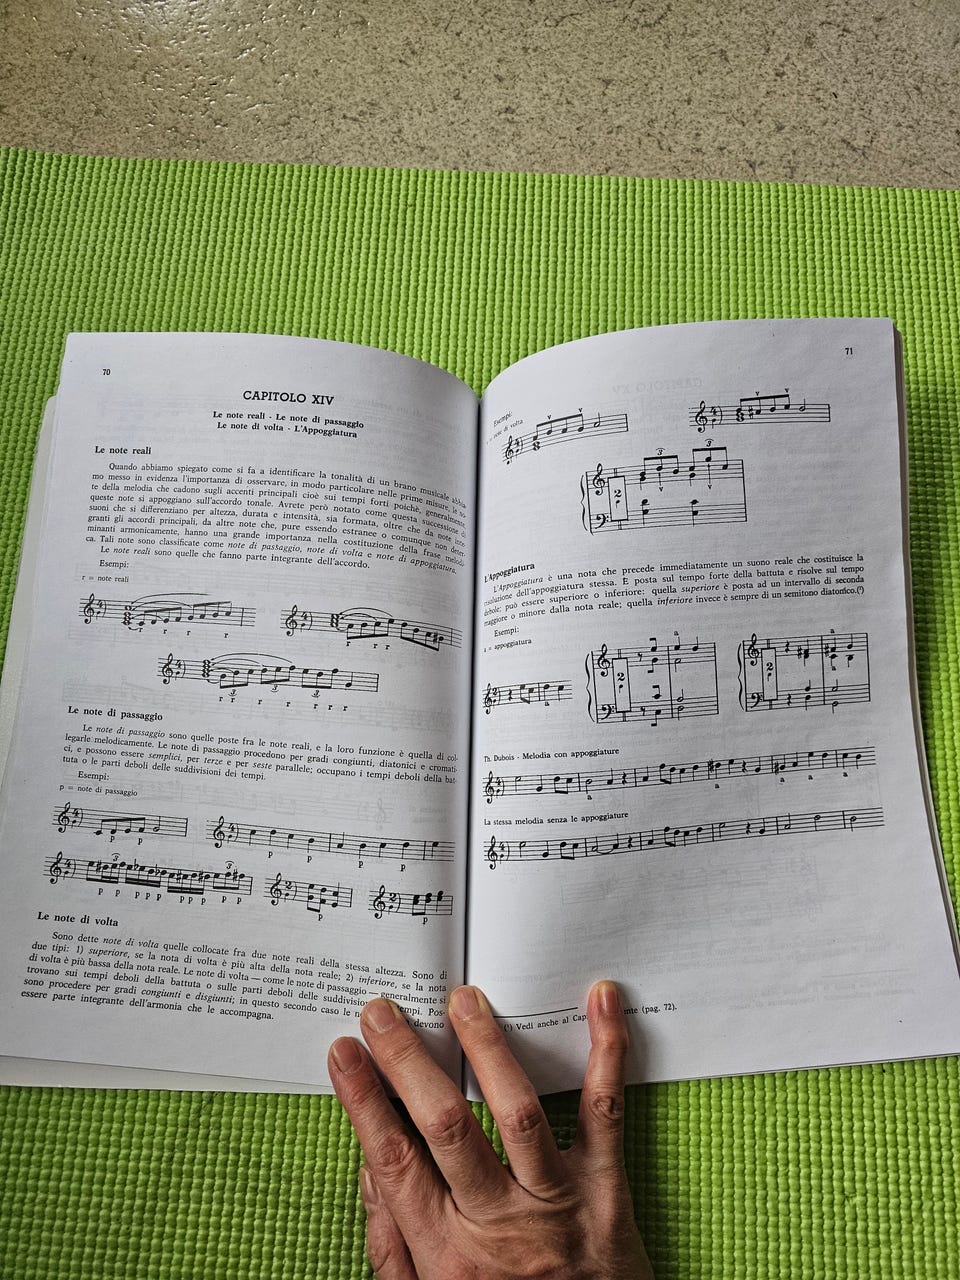 70
CAPITOLO XIV
Le note reali - Le note di passaggio
Le note di volta - L'Appoggiatura
Le note reali
Quando abbiamo spiegato come si fa a identificare la tonalità di un brano musicale abbia-
mo messo in evidenza l'importanza di osservare, in modo particolare nelle prime misure, le no-
te della melodia che cadono sugli accenti principali cioè sui tempi forti poichè, generalmente,
queste note si appoggiano sull'accordo tonale. Avrete però notato come questa successione di
suoni che si differenziano per altezza, durata e intensità, sia formata, oltre che da note inte-
granti gli accordi principali, da altre note che, pure essendo estranee o comunque non deter-
minanti armonicamente, hanno una grande importanza nella costituzione della frase melodi-
ca. Tali note sono classificate come note di passaggio, note di volta e note di appoggiatura.
Le note reali sono quelle che fanno parte integrante dell'accordo.
Esempi:
r = note reali
r r r r
r r r
3 3 3
r r r r r r
Le note di passaggio
Le note di passaggio sono quelle poste fra le note reali, e la loro funzione è quella di col-
legarle melodicamente. Le note di passaggio procedono per gradi congiunti, diatonici e cromati-
ci, e possono essere semplici, per terze e per seste parallele; occupano i tempi deboli della bat-
tuta o le parti deboli delle suddivisioni dei tempi.
Esempi:
p = note di passaggio
p p
p p p p
3 3
p p p p p p p p p p
p
p
Le note di volta
Sono dette note di volta quelle collocate fra due note reali della stessa altezza. Sono di
due tipi: 1) superiore, se la nota di volta è più alta della nota reale; 2) inferiore, se la nota
di volta è più bassa della nota reale. Le note di volta — come le note di passaggio — generalmente si
trovano sui tempi deboli della battuta o sulle parti deboli delle suddivisioni tempi. Pos-
sono procedere per gradi congiunti e disgiunti; in questo secondo caso le devono
essere parte integrante dell'armonia che le accompagna.
71
Esempi:
v = note di volta
v v
v v
3 3
v v
L'Appoggiatura
L'Appoggiatura è una nota che precede immediatamente un suono reale che costituisce la
risoluzione dell'appoggiatura stessa. È posta sul tempo forte della battuta e risolve sul tempo
debole; può essere superiore o inferiore: quella superiore è posta ad un intervallo di seconda
maggiore o minore dalla nota reale; quella inferiore invece è sempre di un semitono diatonico.(¹)
Esempi:
a = appoggiatura
a
a
a
a
Th. Dubois - Melodia con appoggiature
a a a a a a
La stessa melodia senza le appoggiature
(¹) Vedi anche al (pag. 72).